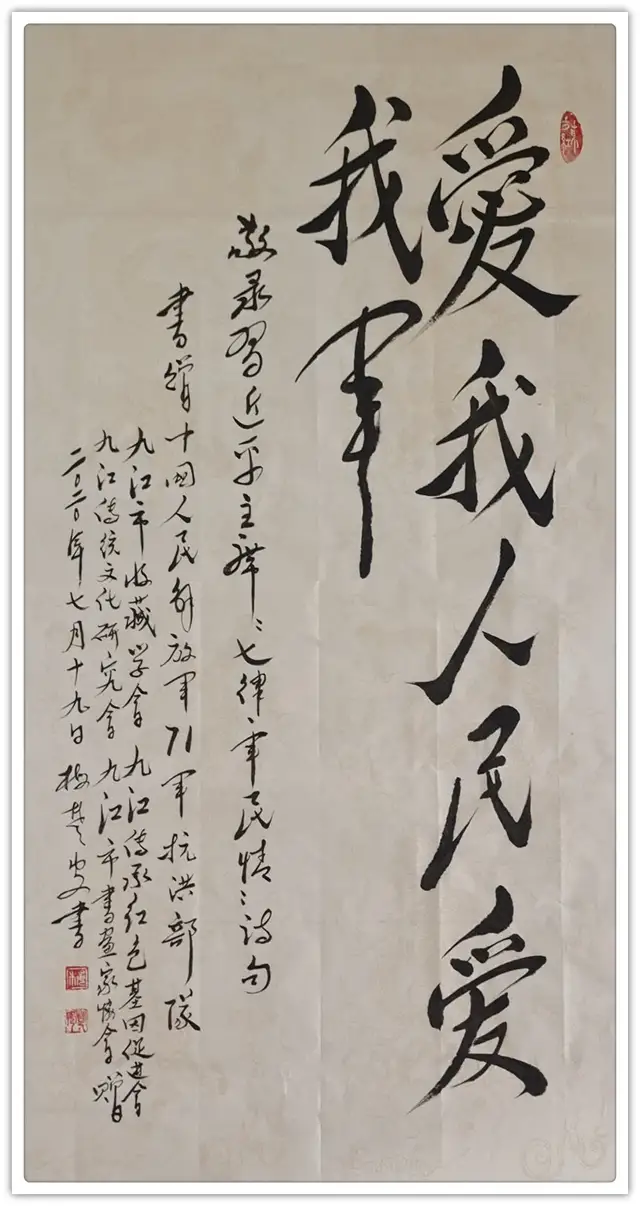 愛我人民爱
我军
敬录習近平主席:七律、军民情:诗句
書赠中国人民解放军71军抗洪部隊
九江市收藏学会 九江传承红色基因促进会
九江传统文化研究会 九江市書画家协会赠
二〇二〇年七月十九日 梅楚 書